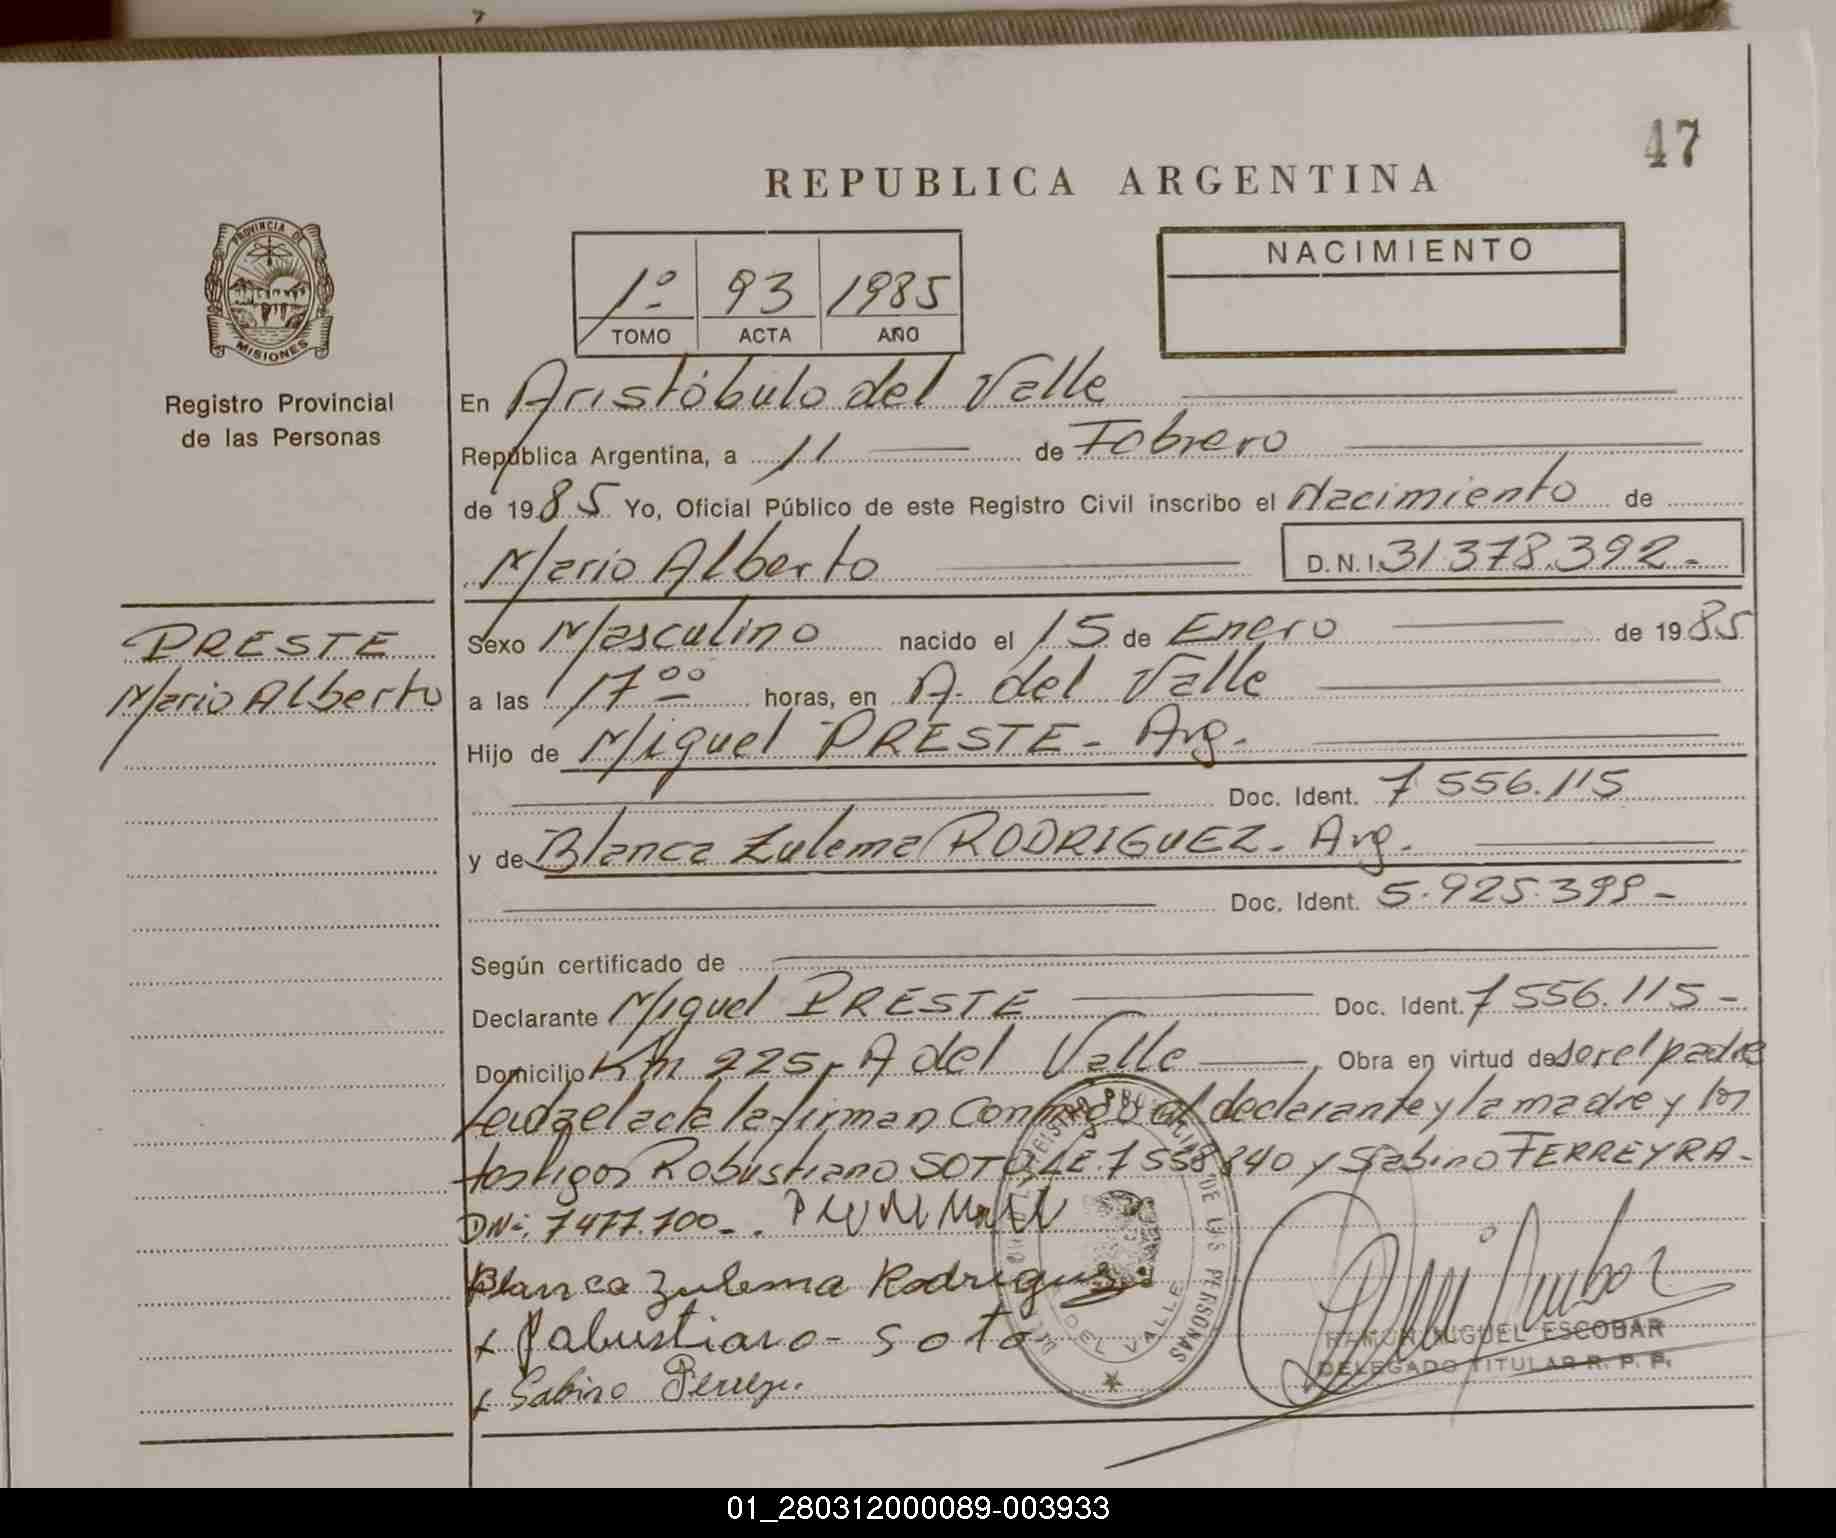 47
REPUBLICA ARGENTINA
PROVINCIA DE
MISIONES
Registro Provincial
de las Personas
1º 93 1985
TOMO ACTA AÑO
NACIMIENTO
En Aristóbulo del Valle
República Argentina, a 11 de Febrero
de 1985 Yo, Oficial Público de este Registro Civil inscribo el Nacimiento de
Mario Alberto D.N.I. 31.378.392.-
PRESTE
Mario Alberto
Sexo Masculino nacido el 15 de Enero de 1985
a las 17°° horas, en A. del Valle
Hijo de Miguel PRESTE - Arg.
Doc. Ident. 7 556.115
y de Blanca Zulema RODRIGUEZ. Arg.
Doc. Ident. 5.925.399-
Según certificado de
Declarante Miguel PRESTE Doc. Ident. 7 556.115-
Domicilio Km 225, A del Valle, Obra en virtud de ser el padre
Leida el acta la firman conmigo el declarante y la madre y los
testigos Robustiano SOTO LE. 7 558 840 y Sabino FERREYRA-
DNi: 7477.700-.
Blanca Zulema Rodriguez
x Rabustiano - Soto
x Sabino
DEL VALLE
RAMON MIGUEL ESCOBAR
DELEGADO TITULAR R. P. P.
01_280312000089-003933